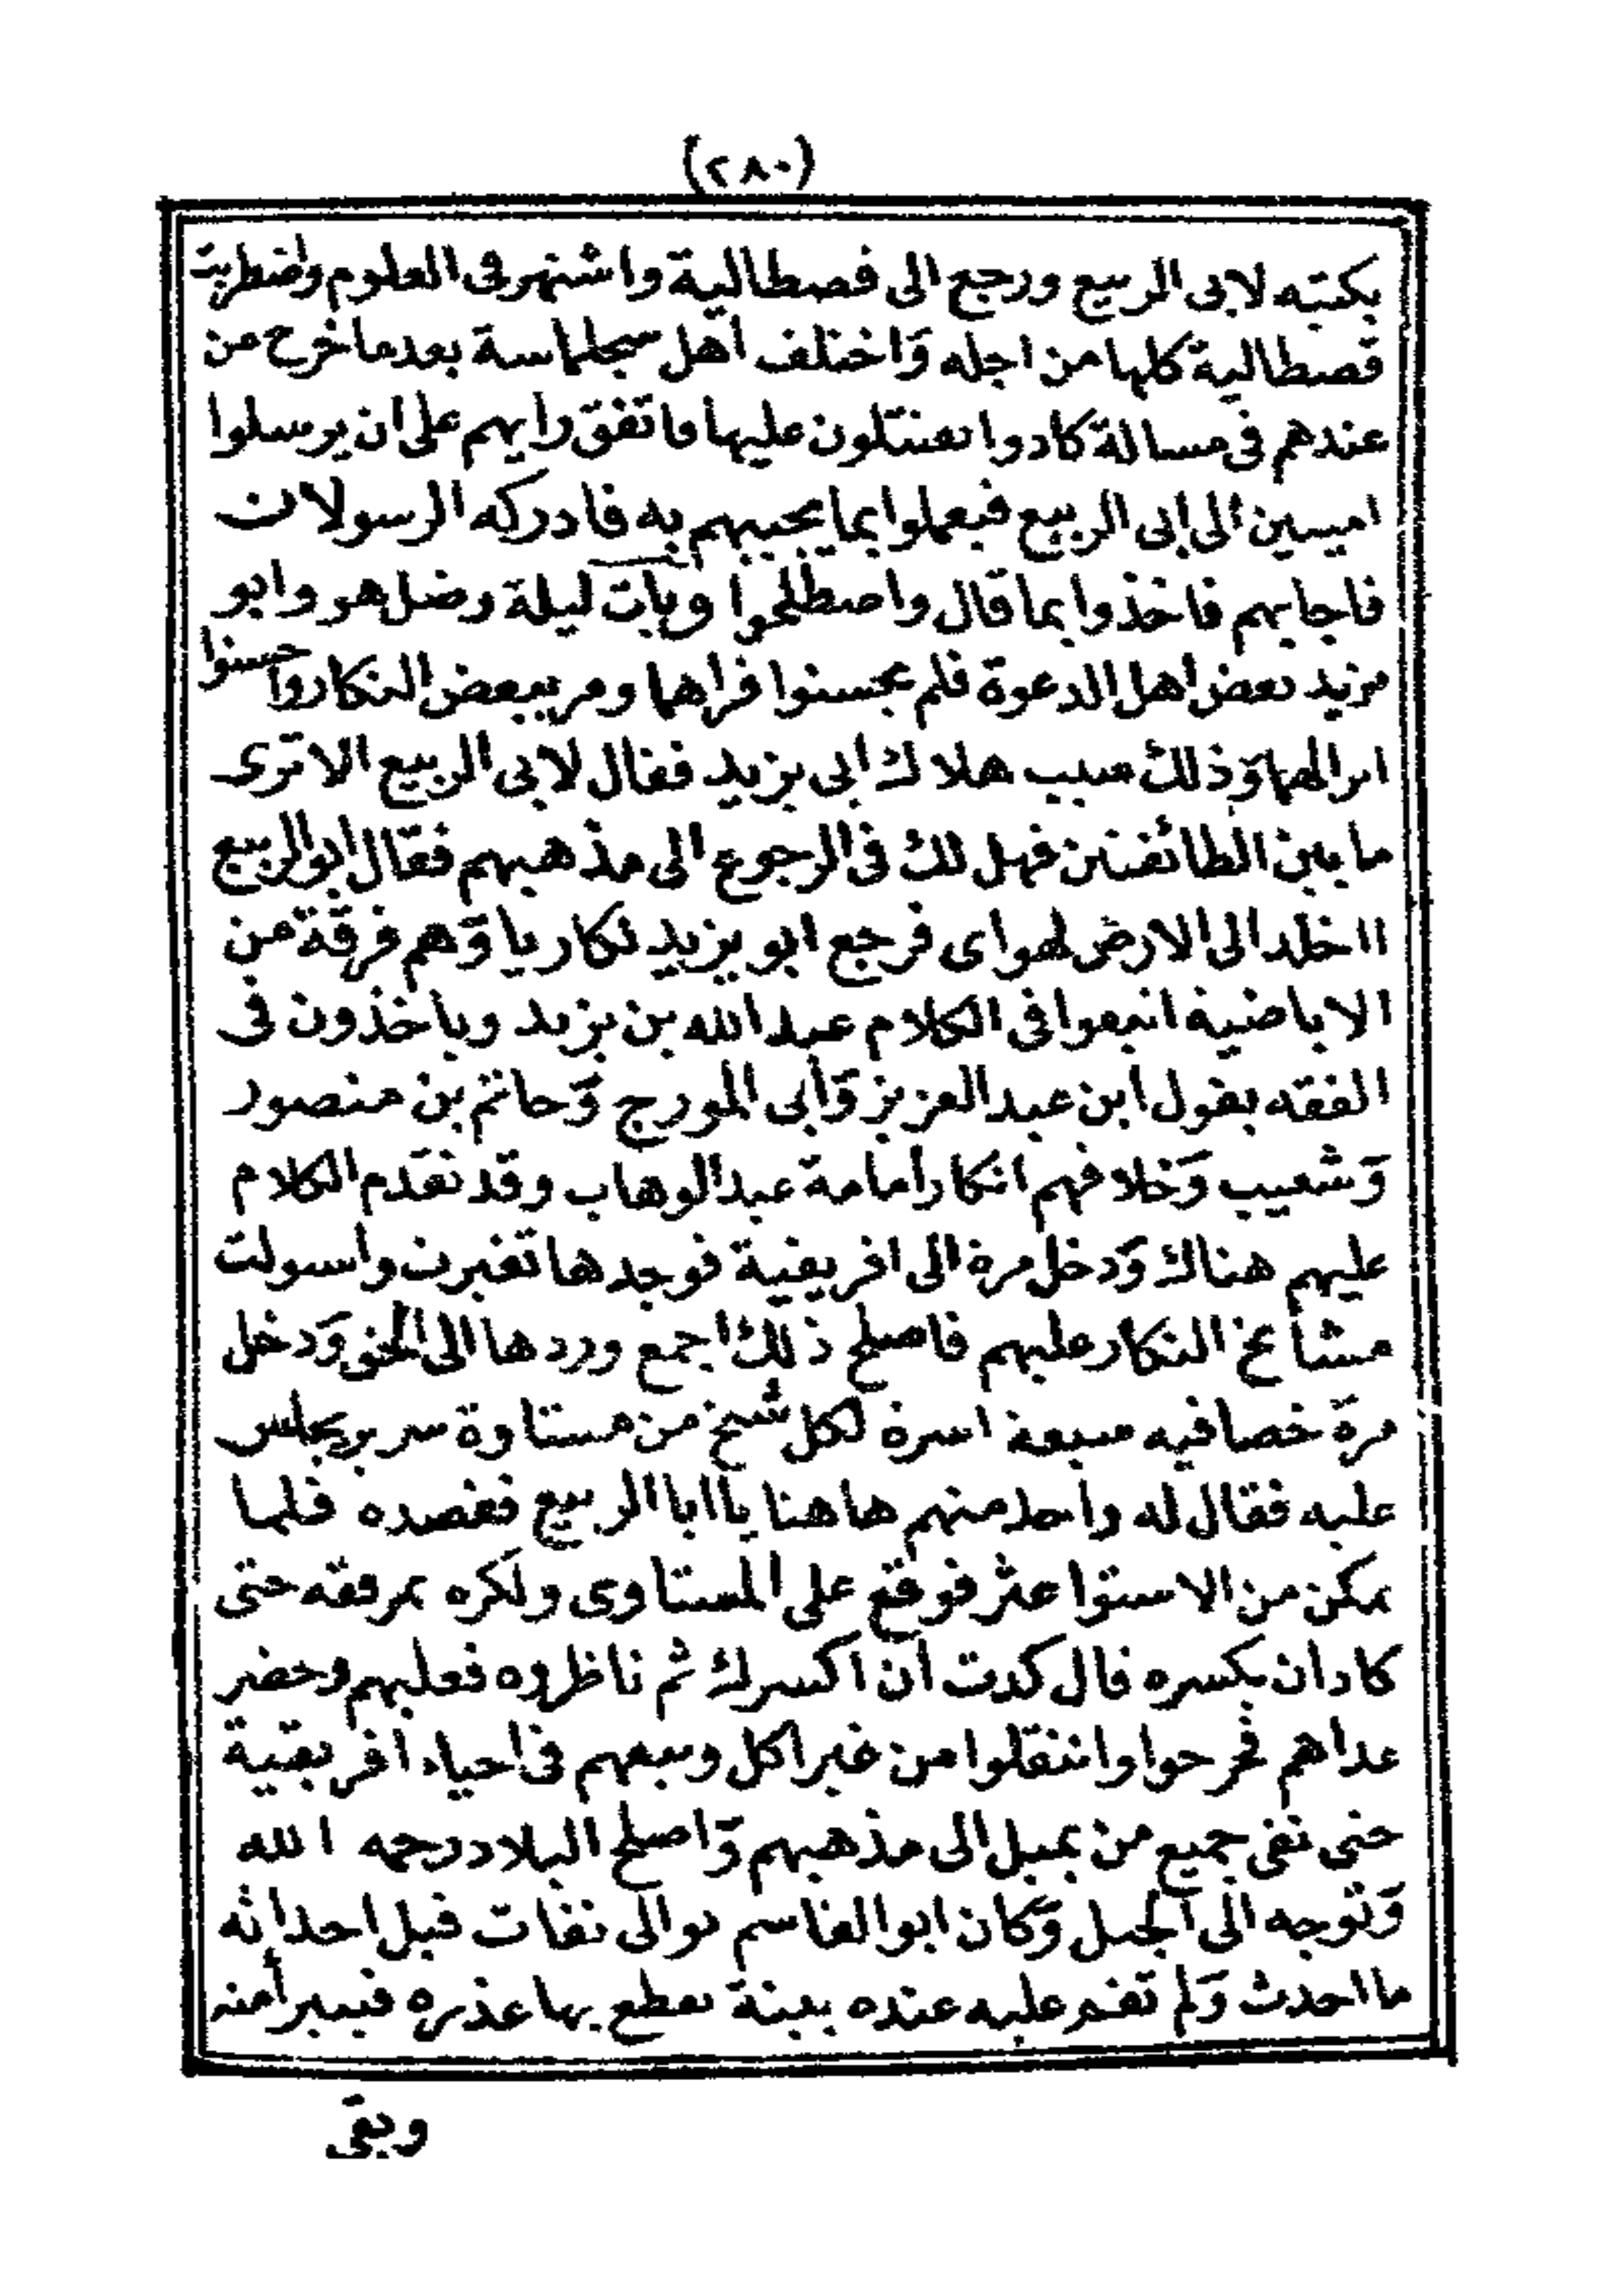 (٢٨٠)
يكتبه لابى الربيع ورجع الى قصطالية واشتهر فى العلوم واضطربت
قصطالية كلها من اجله وَاختلف اهل سجلماسة بعد ما خرج من
عندهم فى مسالة كادوا يقتتلون عليها فاتفق رايهم على ان يرسلوا
امينين الى ابى الربيع فيعملوا بما يجيبهم به فادركه الرسولان
فاجابهم فاخذوا بما قال واصطلحوا وبات ليلة رضل هو وابو
مزيد بعض اهل الدعوة فلم يحسنوا قراهما ومر ببعض النكار واحسنوا
انزالهما وَذلك سبب هلاك ابى يزيد فقال لابى الربيع الا ترى
ما بين الطائفتين فهل لك فى الرجوع الى مذهبهم فقال ابو الربيع
ااخلد الى الارض لهواى فرجع ابو يزيد نكاريا وَهم فرقة من
الاباضية اتبعوا فى الكلام عبد الله بن يزيد وياخذون فى
الفقه بقول ابن عبد العزيز وَأبى المورج وَحاتم بن منصور
وَشعيب وَخلافهم انكار أمامة عبد الوهاب وقد تقدم الكلام
عليهم هناك وَدخل مرة الى افريقية فوجدها تغيرت واسولت
مشائخ النكار عليهم فاصلح ذلك اجمع وردها الى الحق وَدخل
مرة خصا فيه سبعة اسرة لكل شيخ من مستاوة سرير يجلس
عليه فقال له واحد منهم هاهنا يا ابا الربيع فقصده فلما
تمكن من الاستوا عثر فوقع على المستاوى ولكزه بمرفقه حتى
كاد ان يكسره قال كدت ان اكسرك ثم ناظروه فغلبهم وحضر
غداهم فخرجوا وانتقلوا من غير اكل وتبعهم فى احياء افريقية
حتى نفى جميع من يميل الى مذهبهم وَاصلح البلاد رحمه الله
وَتوجه الى الجبل وَكان ابو القاسم يوالى نفاث قبل احداثه
ما احدث وَلم تقم عليه عنده بينة يقطع بها عذره فيبرأ منه
وبقى